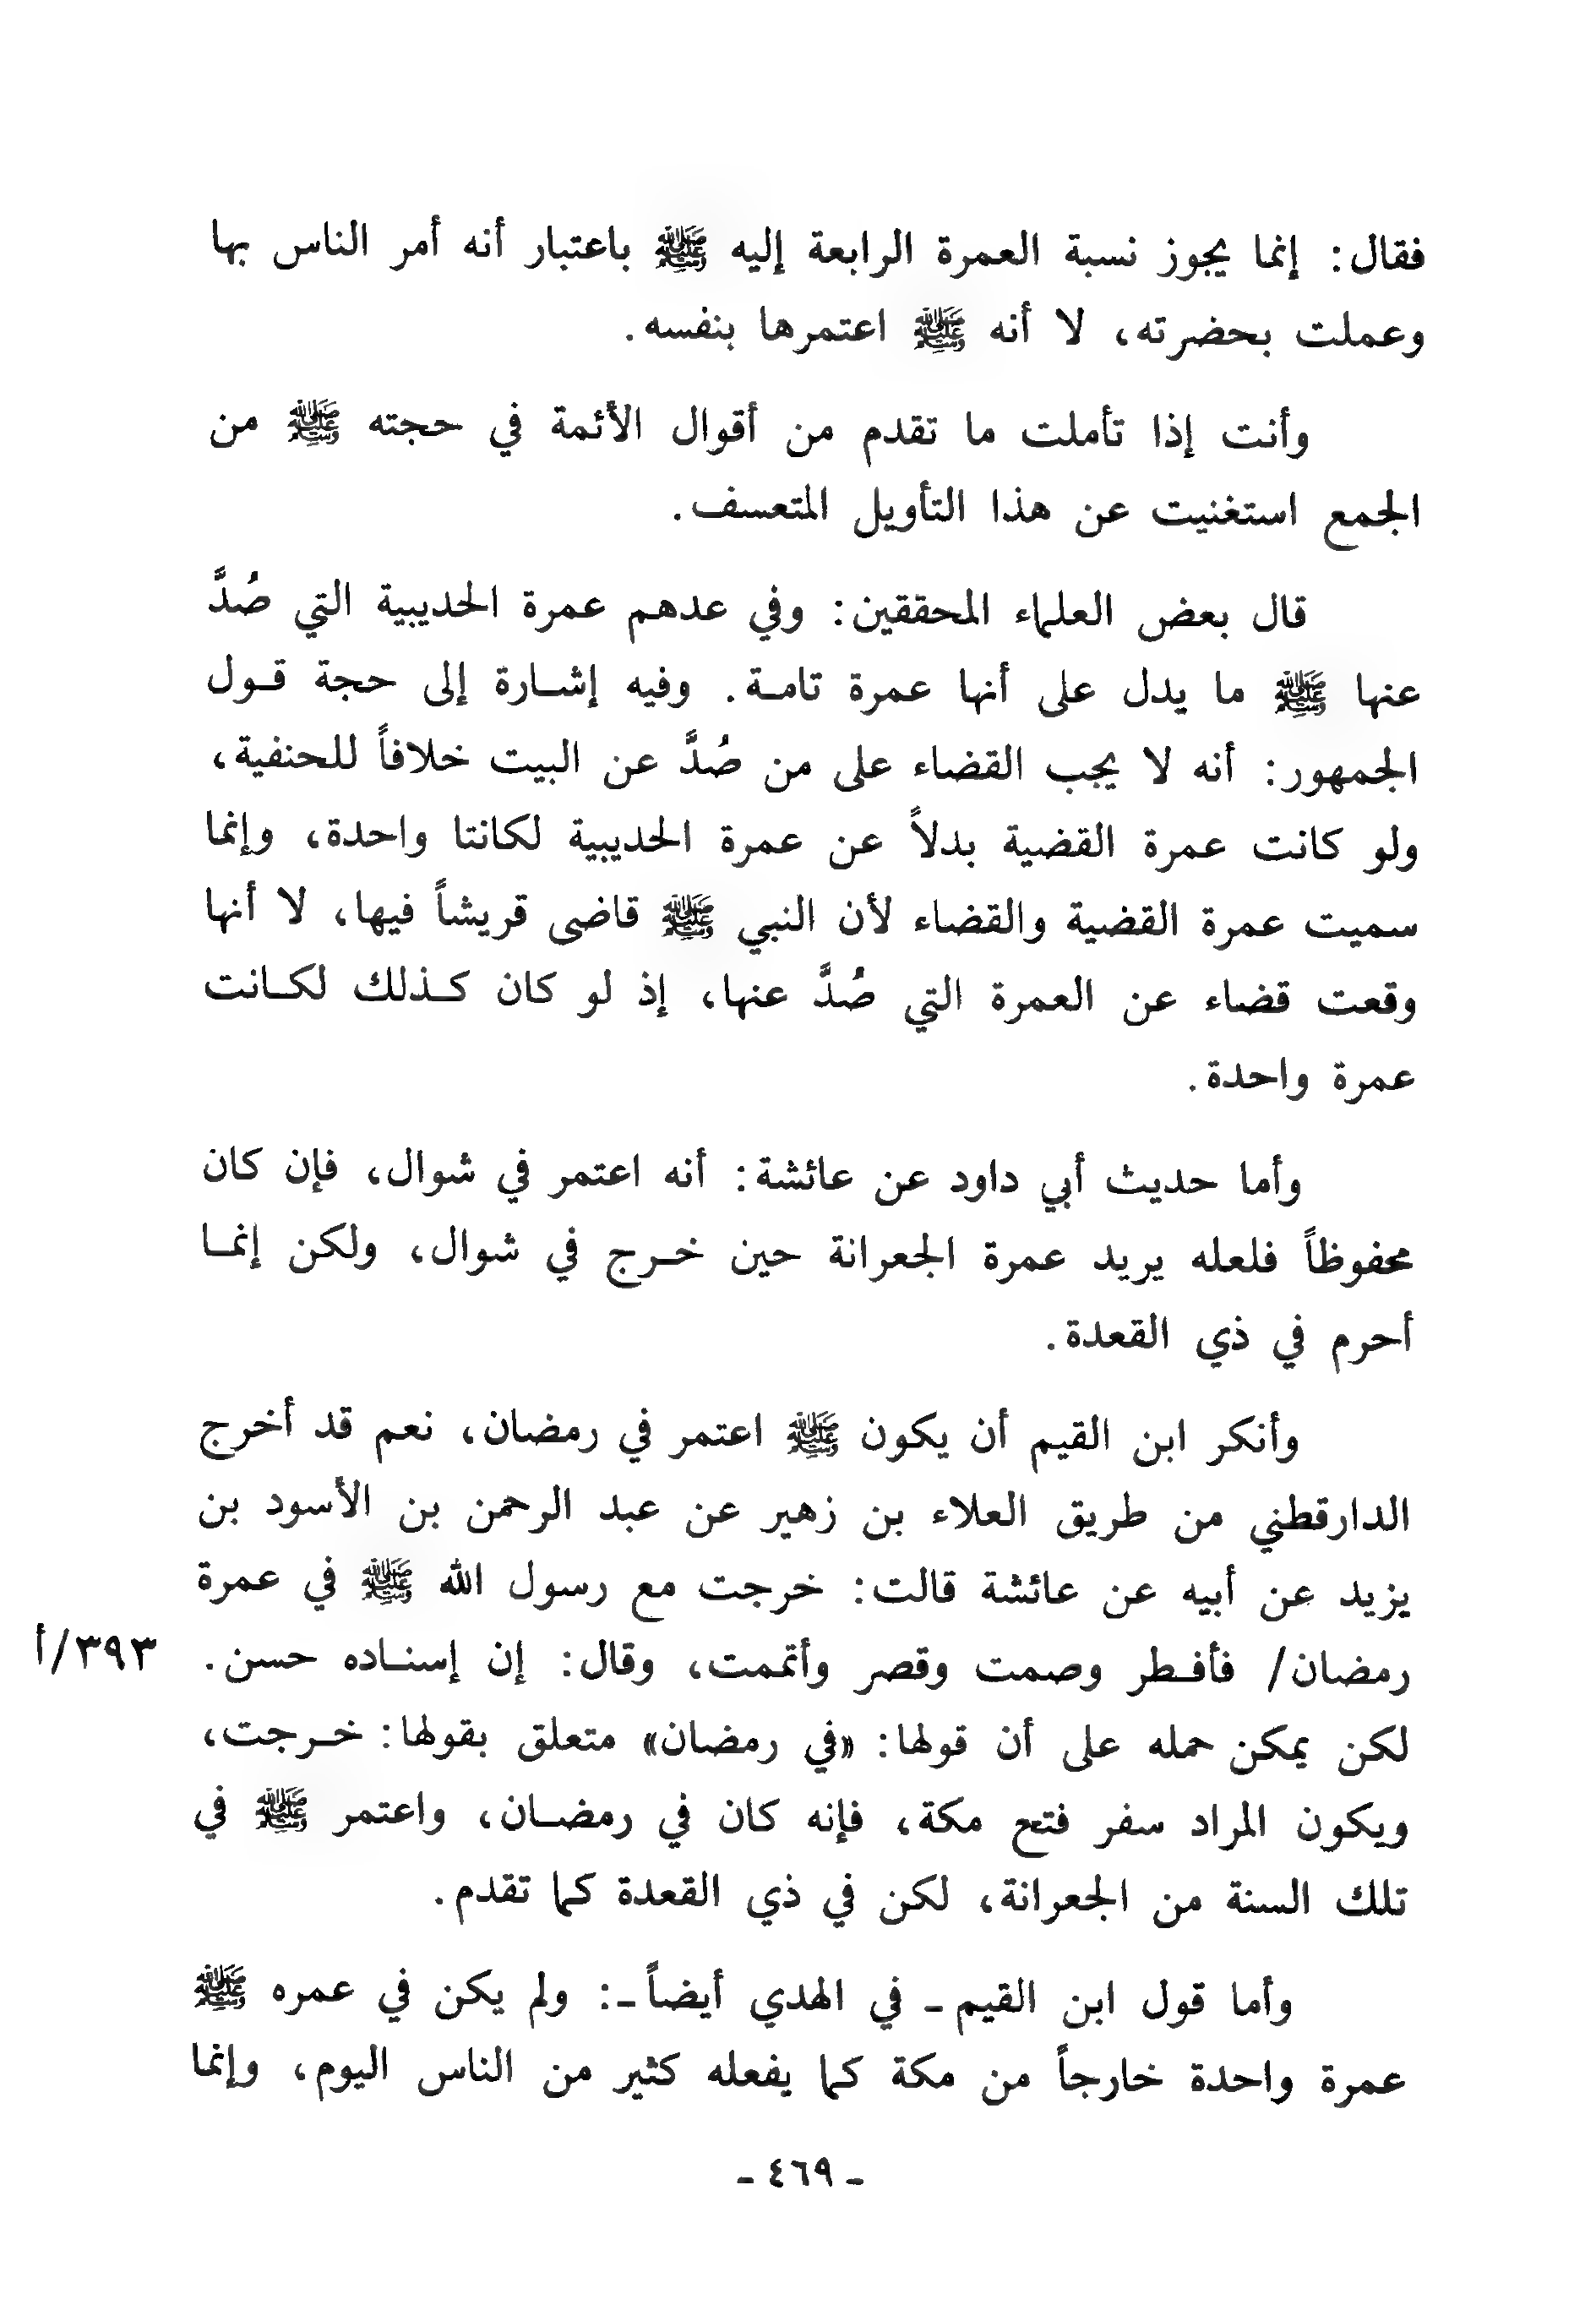 فقال: إنما يجوز نسبة العمرة الرابعة إليه ﷺ باعتبار أنه أمر الناس بها
وعملت بحضرته، لا أنه ﷺ اعتمرها بنفسه.
وأنت إذا تأملت ما تقدم من أقوال الأئمة في حجته ﷺ من
الجمع استغنيت عن هذا التأويل المتعسف.
قال بعض العلماء المحققين: وفي عدهم عمرة الحديبية التي صُدَّ
عنها ﷺ ما يدل على أنها عمرة تامة. وفيه إشارة إلى حجة قول
الجمهور: أنه لا يجب القضاء على من صُدَّ عن البيت خلافاً للحنفية،
ولو كانت عمرة القضية بدلاً عن عمرة الحديبية لكانتا واحدة، وإنما
سميت عمرة القضية والقضاء لأن النبي ﷺ قاضى قريشاً فيها، لا أنها
وقعت قضاء عن العمرة التي صُدَّ عنها، إذ لو كان كذلك لكانت
عمرة واحدة.
وأما حديث أبي داود عن عائشة: أنه اعتمر في شوال، فإن كان
محفوظاً فلعله يريد عمرة الجعرانة حين خرج في شوال، ولكن إنما
أحرم في ذي القعدة.
وأنكر ابن القيم أن يكون ﷺ اعتمر في رمضان، نعم قد أخرج
الدارقطني من طريق العلاء بن زهير عن عبد الرحمن بن الأسود بن
يزيد عن أبيه عن عائشة قالت: خرجت مع رسول الله ﷺ في عمرة
رمضان/ فأفطر وصمت وقصر وأتممت، وقال: إن إسناده حسن. ٣٩٣/أ
لكن يمكن حمله على أن قولها: «في رمضان» متعلق بقولها: خرجت،
ويكون المراد سفر فتح مكة، فإنه كان في رمضان، واعتمر ﷺ في
تلك السنة من الجعرانة، لكن في ذي القعدة كما تقدم.
وأما قول ابن القيم - في الهدي أيضاً -: ولم يكن في عمره ﷺ
عمرة واحدة خارجاً من مكة كما يفعله كثير من الناس اليوم، وإنما
- ٤٦٩ -